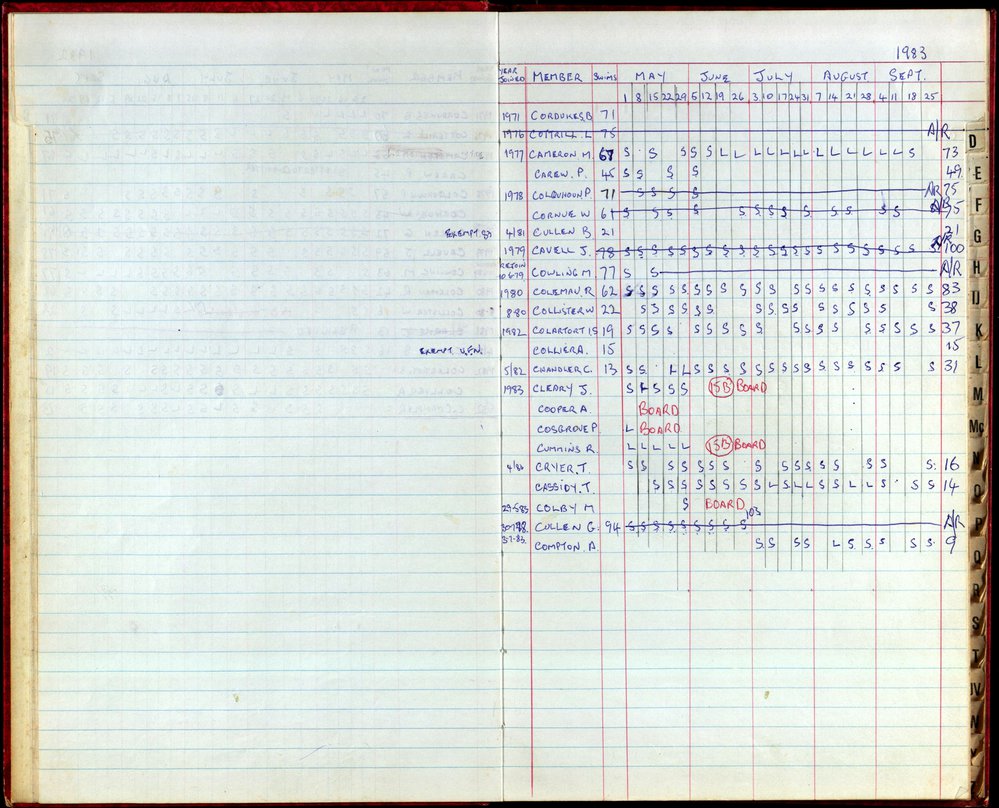 1983
YEAR JOINED MEMBER Swims MAY JUNE JULY AUGUST SEPT.
1 8 15 22 29 5 12 19 26 3 10 17 24 31 7 14 21 28 4 11 18 25
1971 CORDUKES.B 71
1976 COTTRILL.L 75 A/R
1977 CAMERON M. 67 S S S S S L L L L L L L L L L L L L L S 73
CAREW. P. 45 S S S S 49
1978 COLQUHOUN P. 71 S S S S A/R 75
CORNUE W 61 S S S S S S S S S S S S A/R 75
EXEMPT 83 4/81 CULLEN B, 21 21
1979 CAVELL J. 78 S S S S S S S S S S S S S S S S S S S S S S A/R 100
REJOIN 10-6-79 COWLING M. 77 S S A/R
1980 COLEMAN. R 62 S S S S S S S S S S S S S S S S S S S S S 83
8-80 COLLISTER W 22 S S S S S S S S S S S S S S S S 38
1982 COLARTORTI S 19 S S S S S S S S S S S S S S S S S S 37
EXEMPT U.F.N. COLLIER A. 15 15
5/82 CHANDLER C. 13 S S L L S S S S S S S S S S S S S S S S 31
1983 CLEARY J. S L S S S 15B BOARD
COOPER A. BOARD
COSGROVE P. L BOARD
CUMMINS R. L L L L L 15B BOARD
4/83 CRYER. T. S S S S S S S S S S S S S S S S 16
CASSIDY. T. S S S S S S S S L S L L S S L L S S S 14
29-5-83 COLBY M S BOARD
CULLEN G. 94 S S S S S S S S S 103 A/R
3-7-83. COMPTON A. S S S S L S S S S S 9
D
E
F
G
H
IJ
K
L
M
Mc
N
O
P
Q
R
S
T
UV
W